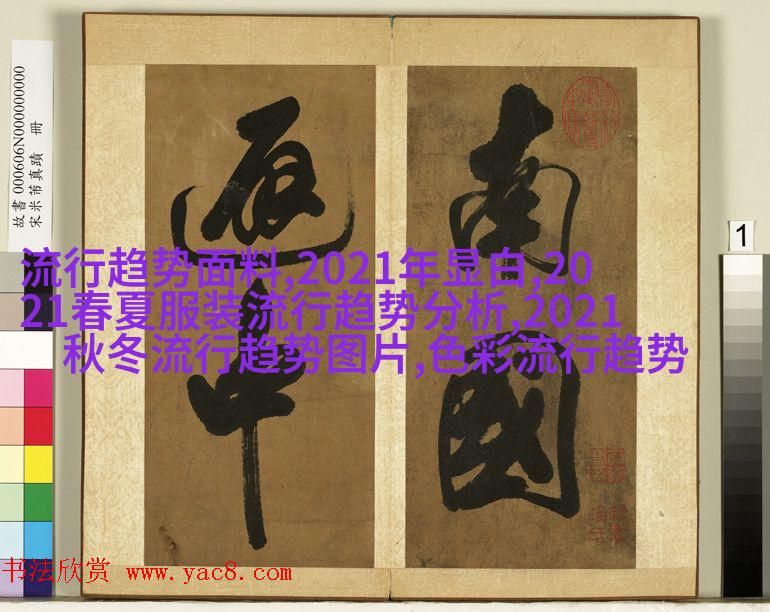 故書 000606N000000000
宋米芾真蹟 冊
南國
中
流行趋势面料,2021年显白,20
21春夏服装流行趋势分析,2021
秋冬流行趋势图片,色彩流行趋势
1
书法欣赏 www.yac8.com